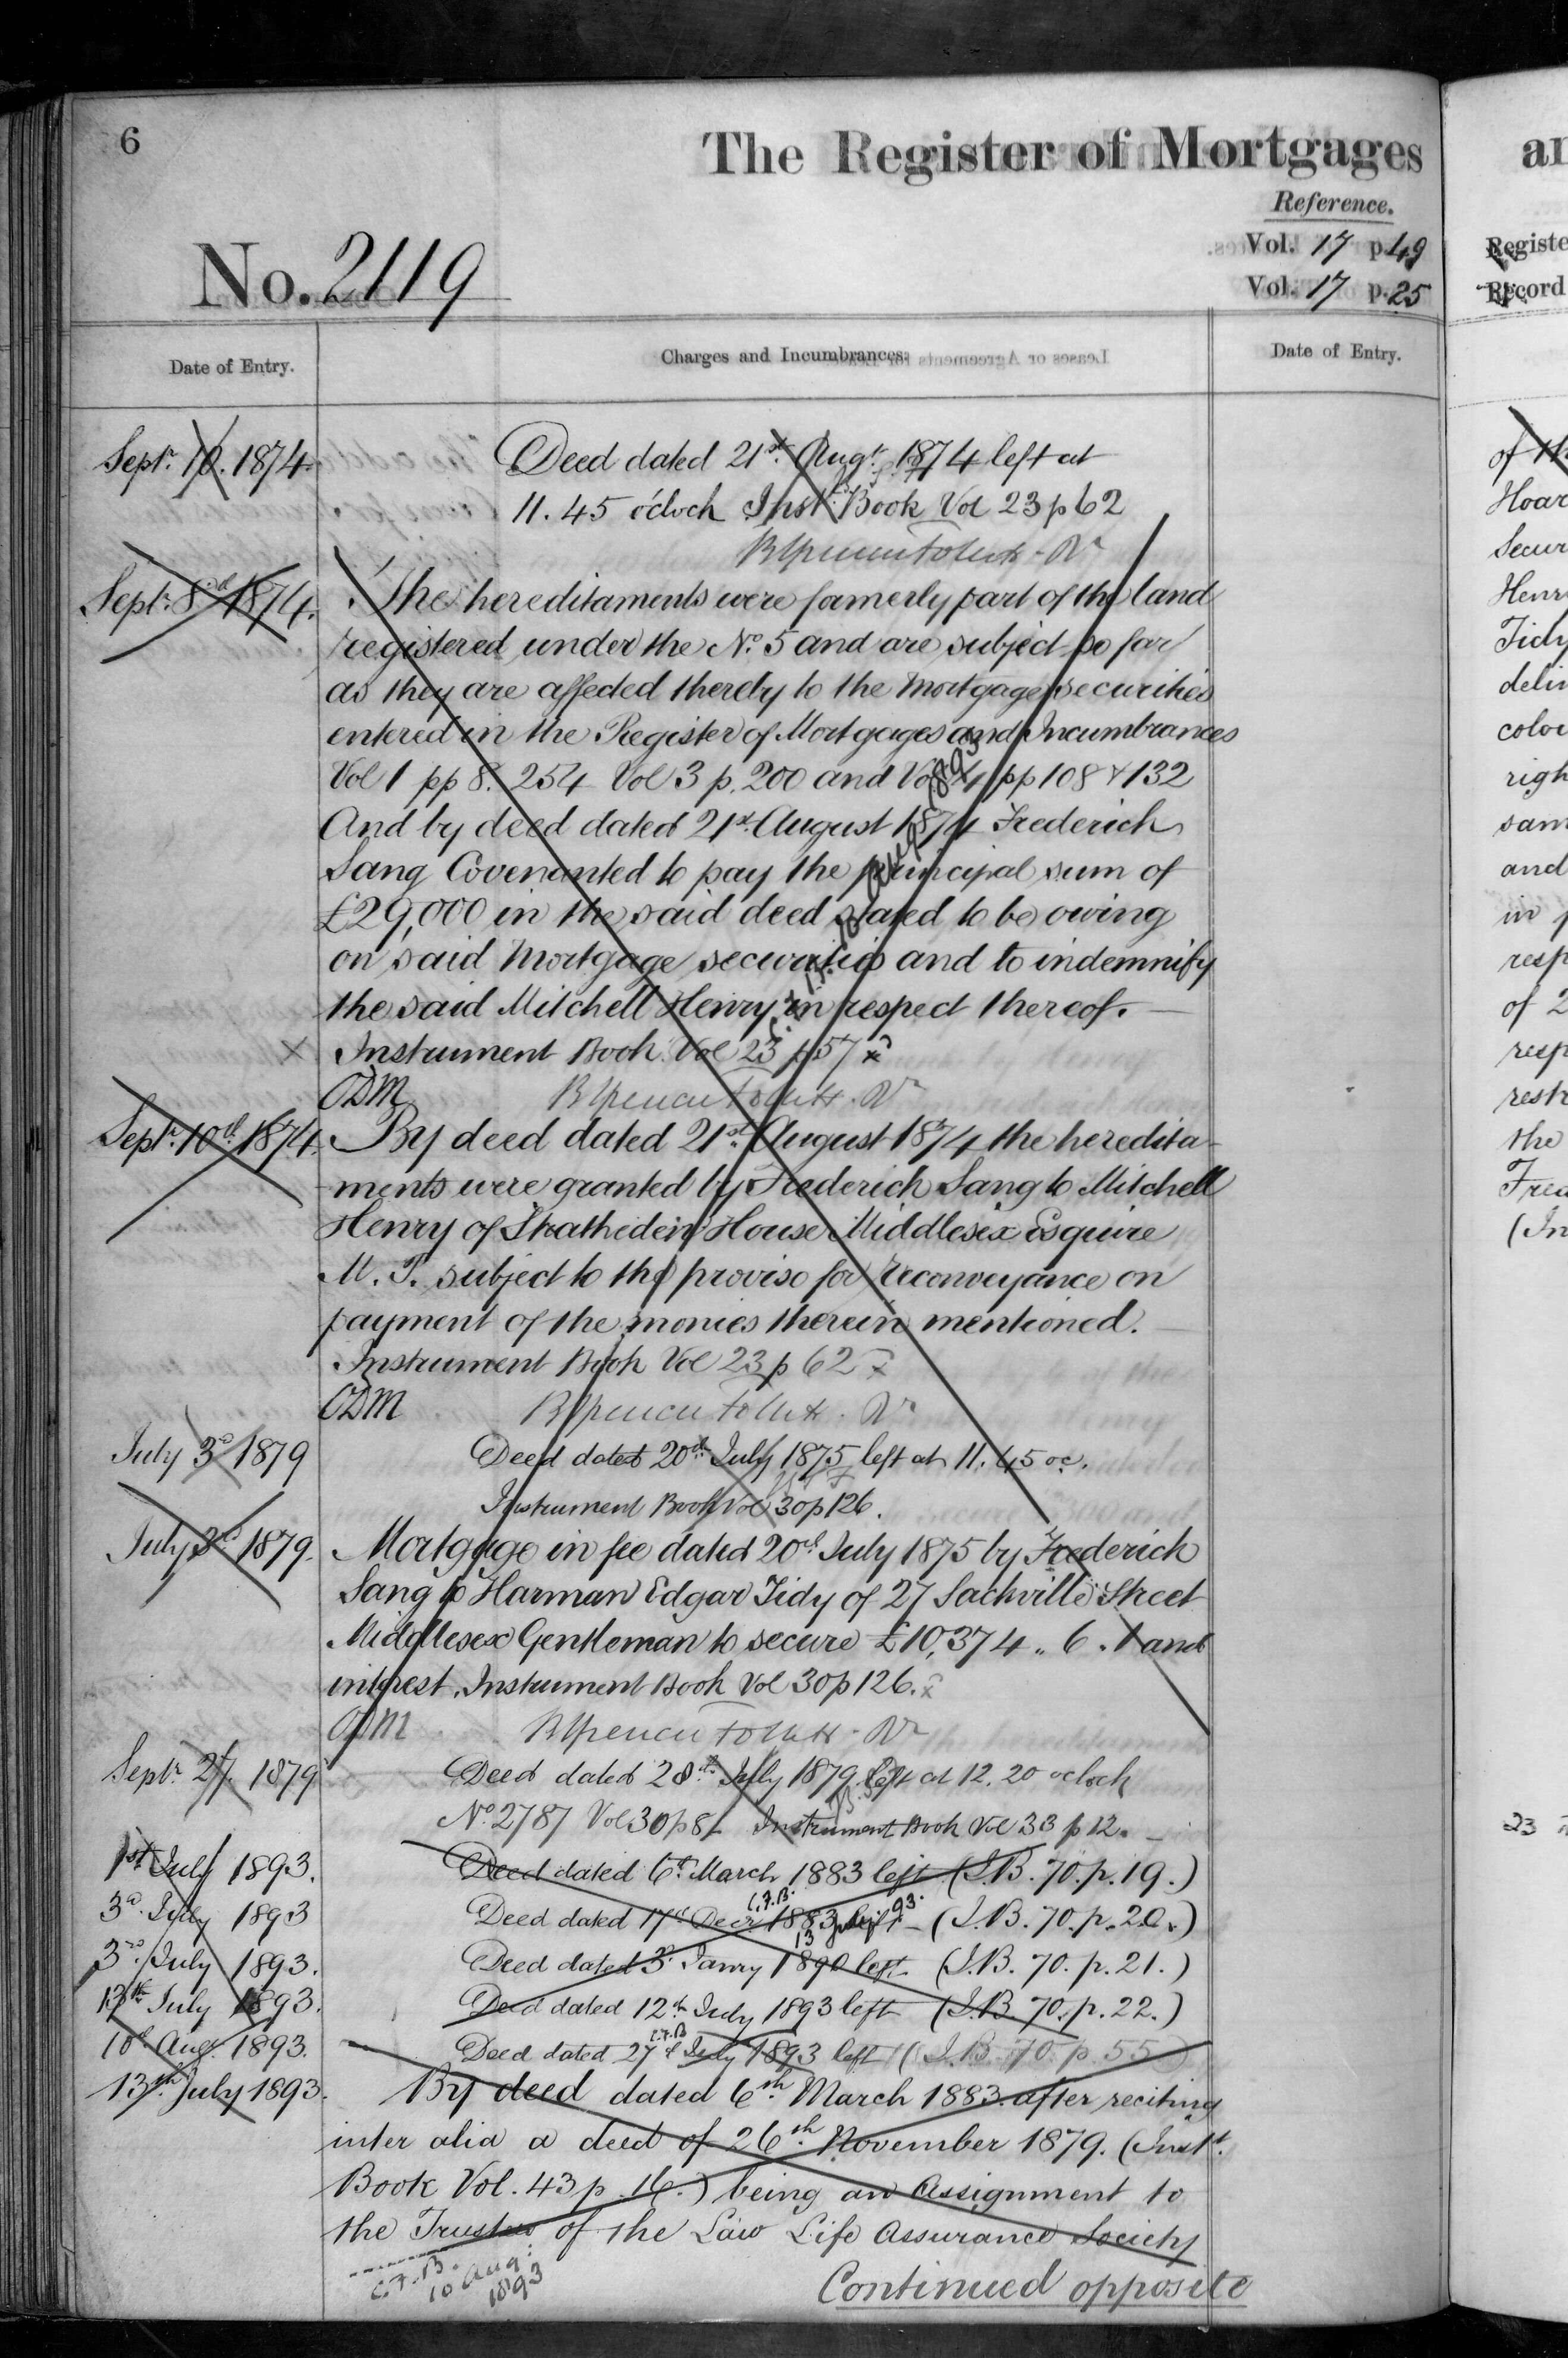 6
The Register of Mortgages
Reference.
Vol. 17 p. 49
Vol. 17 p. 25
No. 2119
Date of Entry.
Charges and Incumbrances.
Date of Entry.
Sept.r 10. 1874
Deed dated 21st Augt. 1874 left at
11.45 o'clock Inst. Book Vol 23 p 62
Sept.r 8th 1874.
The hereditaments were formerly part of the land
registered under the No. 5 and are subject so far
as they are affected thereby to the Mortgage securities
entered in the Register of Mortgages and Incumbrances
Vol 1 pp 8. 254 Vol 3 p. 200 and Vol 4 pp 108 & 132
And by deed dated 21st August 1874 Frederick
Sang Covenanted to pay the principal sum of
£29,000 in the said deed stated to be owing
on said Mortgage securities and to indemnify
the said Mitchell Henry in respect thereof.
x Instrument Book Vol 23 p 57 x
ODM
Sept.r 10th 1874.
By deed dated 21st August 1874 the heredita-
ments were granted by Frederick Sang to Mitchell
Henry of Stratheden House Middlesex Esquire
M. P. subject to the proviso for reconveyance on
payment of the monies therein mentioned.
Instrument Book Vol 23 p 62 x
ODM
July 3d 1879
Deed dated 20th July 1875 left at 11.45 oc.
Instrument Book Vol 30 p 126.
July 3d 1879.
Mortgage in fee dated 20th July 1875 by Frederick
Sang to Harman Edgar Tidy of 27 Sackville Street
Middlesex Gentleman to secure £10,374 „ 6 . 1 and
interest. Instrument Book Vol 30 p 126. x
ODM
Sept.r 27. 1879
Deed dated 28th July 1879 left at 12.20 oclock
No. 2787 Vol 30 p 81 Instrument Book Vol 33 p 12.
1st July 1893.
Deed dated 6th March 1883 left (I.B. 70. p. 19.)
3d July 1893
Deed dated 17th Decr 1883 left - (I.B. 70. p. 20.)
C.F.B.
13 July 93.
3rd July 1893.
Deed dated 3d Janry 1890 left (I.B. 70. p. 21.)
13th July 1893.
Deed dated 12th July 1893 left (I.B. 70. p. 22.)
10th Aug. 1893.
C.F.B
Deed dated 27th July 1893 left (I.B. 70. p. 55)
13th July 1893.
By deed dated 6th March 1883 after reciting
inter alia a deed of 26th November 1879. (Instt.
Book Vol. 43 p. 16.) being an Assignment to
the Trustees of the Law Life Assurance Society
C.F.B.
10 Aug:
1893
Continued opposite
ar
Registe
Record
Hoar
Secur
Henr
Tidy
deliv
colou
righ
sam
and
in p
resp
of 2
resp
restr
the
Fred
(In
23